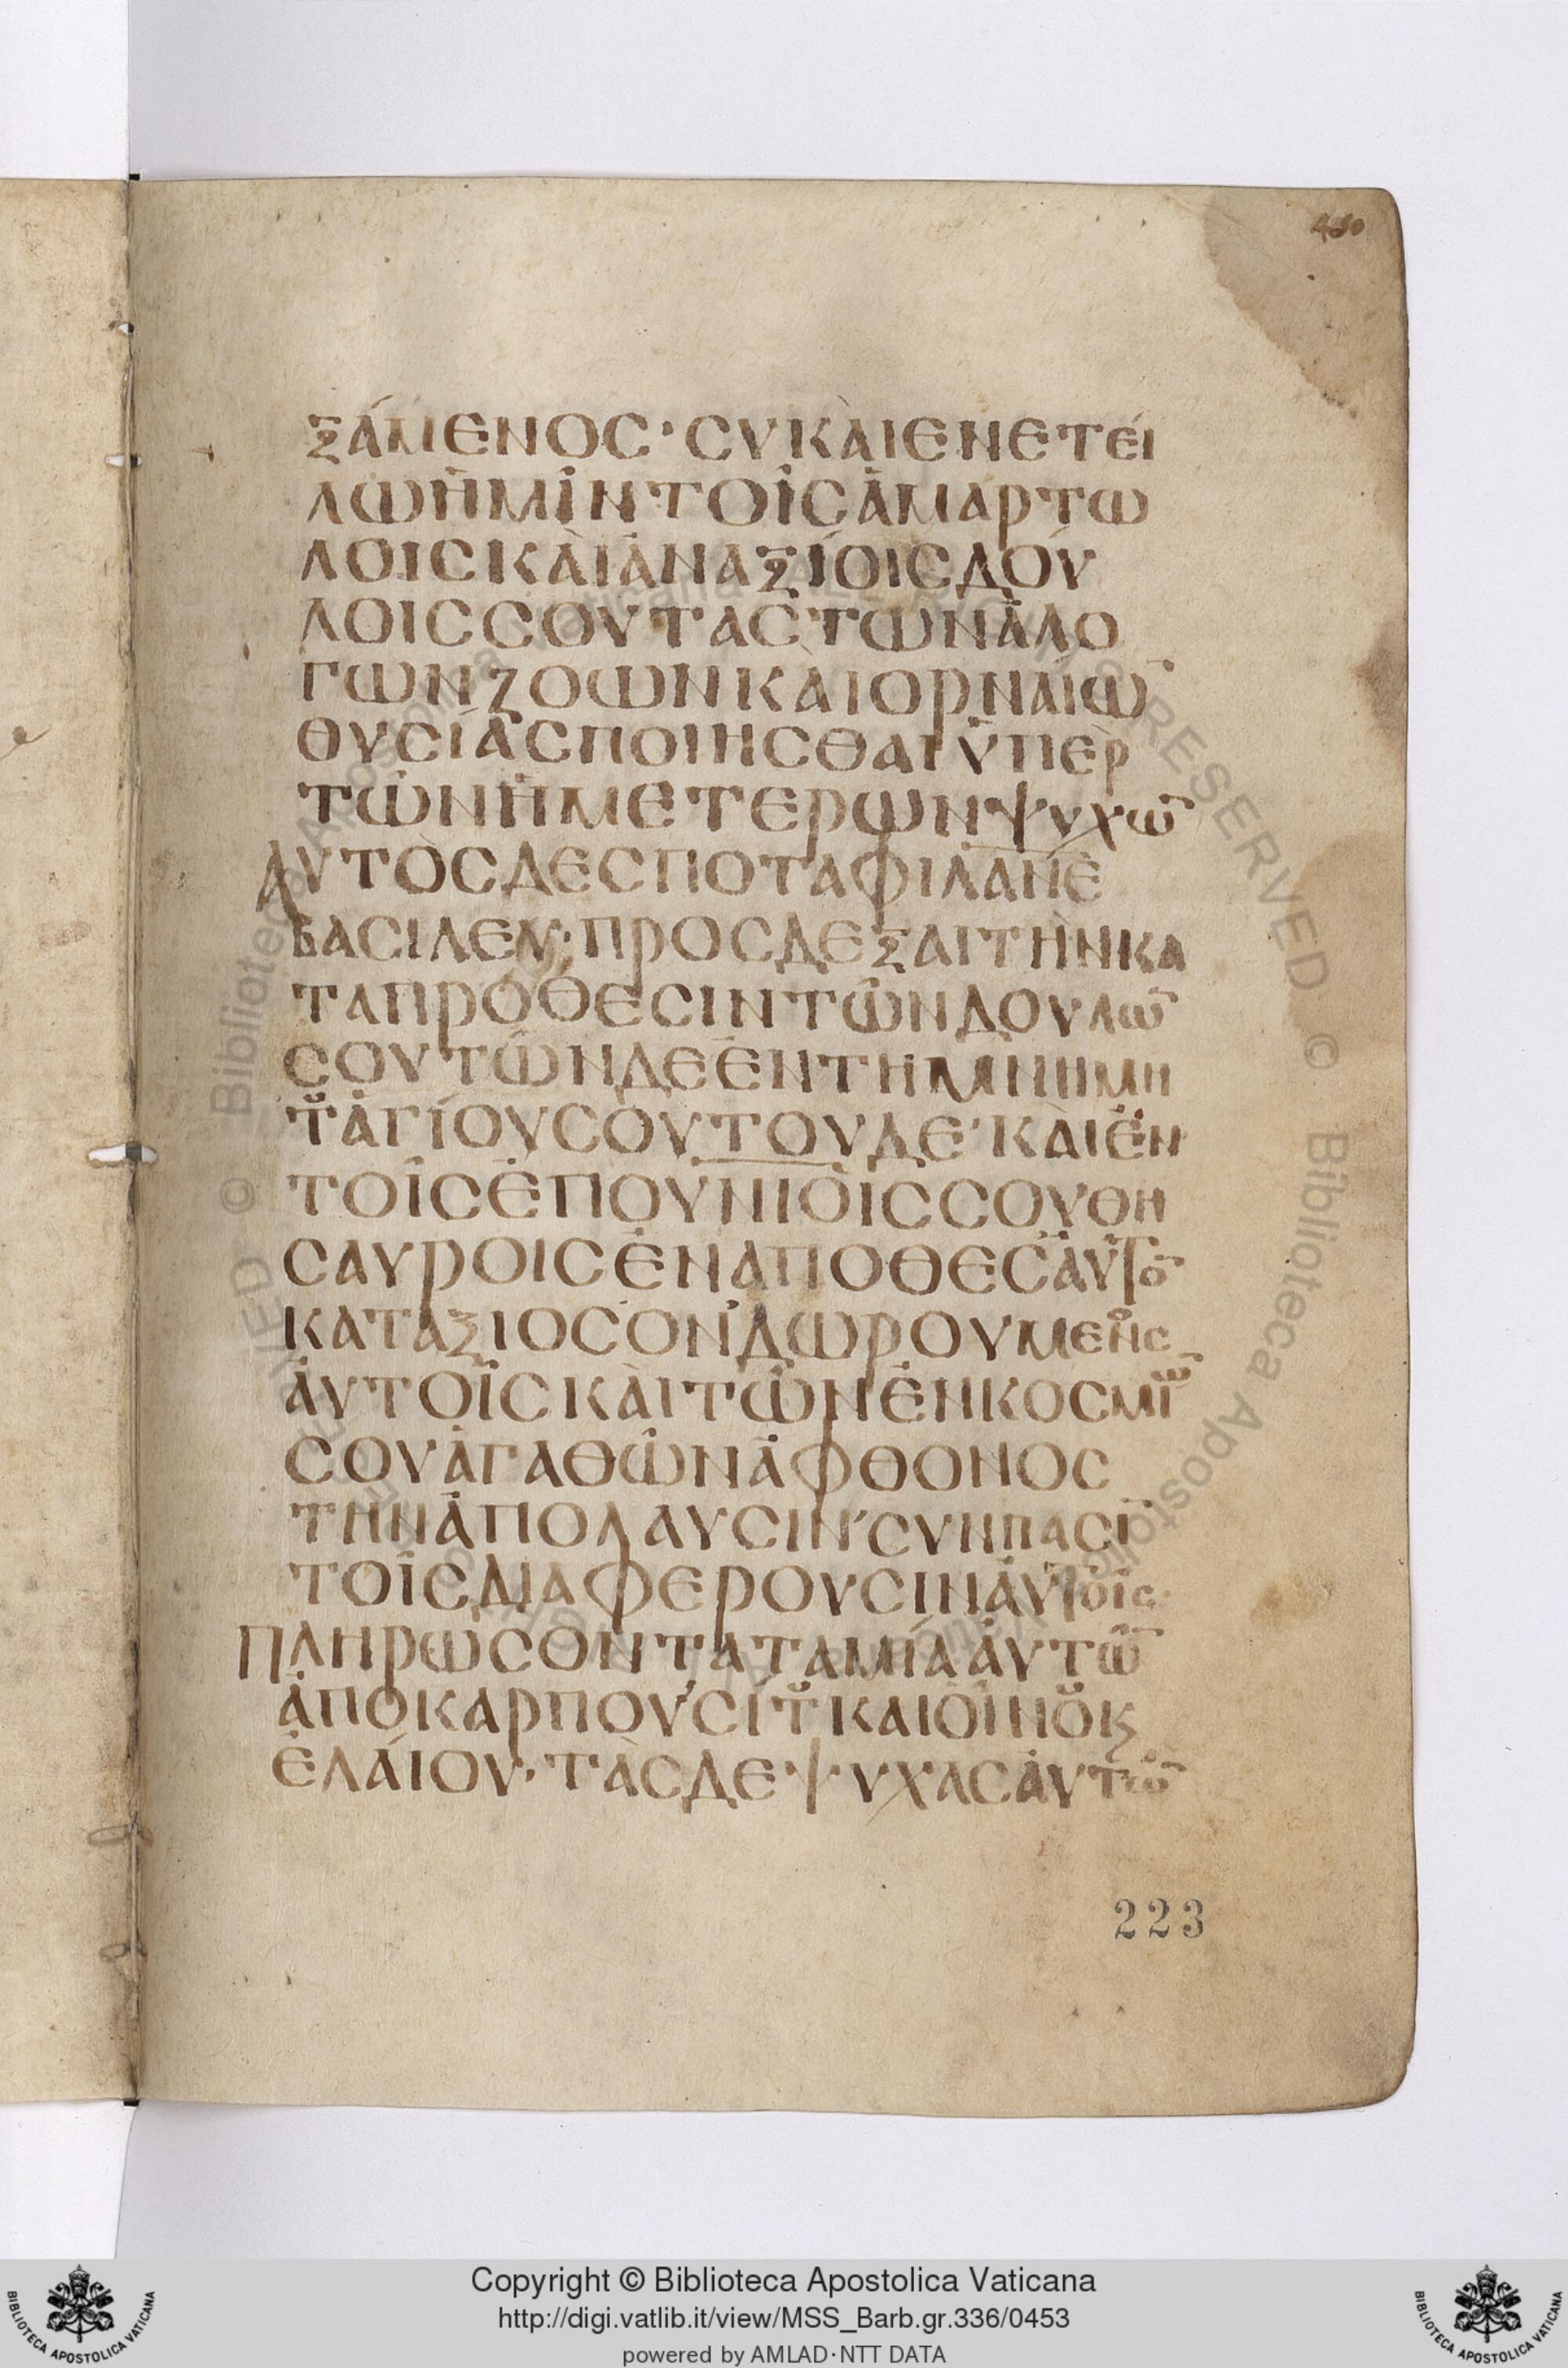 480
ξάμενος· συ κὰι ενετεί
λω ἡμῖν τοῖς ἁμαρτω
λοις κὰι ἀναξίοις δού
λοις σου τας των ἀλο
γων ζοων και ορναίω̅
θυσίας ποιησθαι ὑπὲρ
τῶν ἡμετερων ψυχω̅
Αυτὸς δεσποτα φιλανε̅
βασιλευ· προσδεξαι τὴν κα
τα πρόθεσιν τῶν δουλω̅
σου τῶνδε ἐν τη μνημη
τȣ ἁγίου σοῦ τουδε· κὰι ἐν
τοῖς ἐπουνιοις σου θη
σαυροις ἐναποθες ἀυτο̅
καταξιοσον δωρουμενος
ἀυτοῖς κὰι τῶν ἐν κοσμίω̅
σου ἀγαθῶν ἀφθονος
την ἀπολαυσιν· συν πασι
τοῖς διαφερουσιν ἀυτοῖς
Πληρωσον τα ταμία ἀυτῶ̅
ἀπο καρπου σίτȣ και οἴνȣ κ
ἐλαίου· τὰς δε ψυχας ἀυτῶ̅
223
© Biblioteca Apostolica Vaticana ALL RIGHTS RESERVED
Copyright © Biblioteca Apostolica Vaticana
http://digi.vatlib.it/view/MSS_Barb.gr.336/0453
powered by AMLAD·NTT DATA
BIBLIOTECA APOSTOLICA VATICANA
BIBLIOTECA APOSTOLICA VATICANA